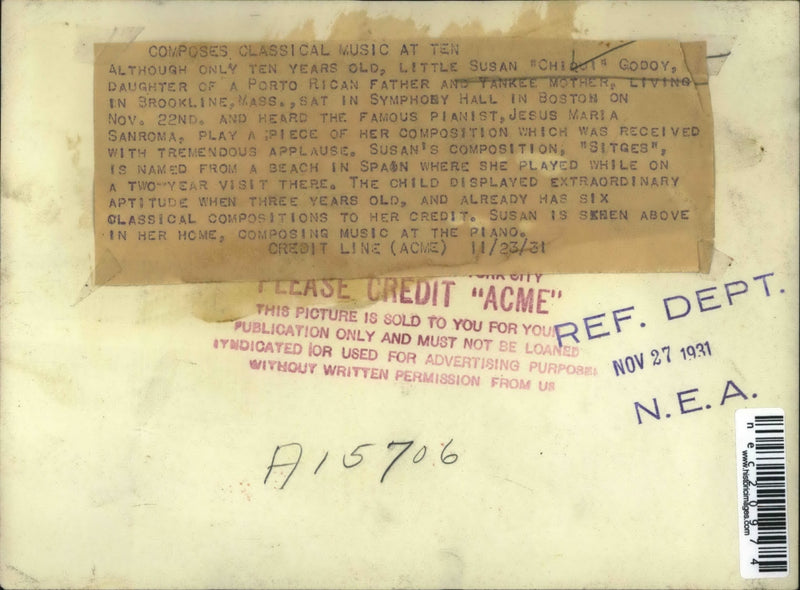 COMPOSES CLASSICAL MUSIC AT TEN
ALTHOUGH ONLY TEN YEARS OLD, LITTLE SUSAN "CHIQUI" GODOY,
DAUGHTER OF A PORTO RICAN FATHER AND YANKEE MOTHER, LIVING
IN BROOKLINE, MASS., SAT IN SYMPHONY HALL IN BOSTON ON
NOV. 22ND. AND HEARD THE FAMOUS PIANIST, JESUS MARIA
SANROMA, PLAY A PIECE OF HER COMPOSITION WHICH WAS RECEIVED
WITH TREMENDOUS APPLAUSE. SUSAN'S COMPOSITION, "SITGES",
IS NAMED FROM A BEACH IN SPAIN WHERE SHE PLAYED WHILE ON
A TWO-YEAR VISIT THERE. THE CHILD DISPLAYED EXTRAORDINARY
APTITUDE WHEN THREE YEARS OLD, AND ALREADY HAS SIX
CLASSICAL COMPOSITIONS TO HER CREDIT. SUSAN IS SEEN ABOVE
IN HER HOME, COMPOSING MUSIC AT THE PIANO.
CREDIT LINE (ACME) 11/23/31
YORK CITY
PLEASE CREDIT "ACME"
THIS PICTURE IS SOLD TO YOU FOR YOUR
PUBLICATION ONLY AND MUST NOT BE LOANED
SYNDICATED OR USED FOR ADVERTISING PURPOSES
WITHOUT WRITTEN PERMISSION FROM US
REF. DEPT.
NOV 27 1931
N.E.A.
A15706
nec20974
www.historicimages.com